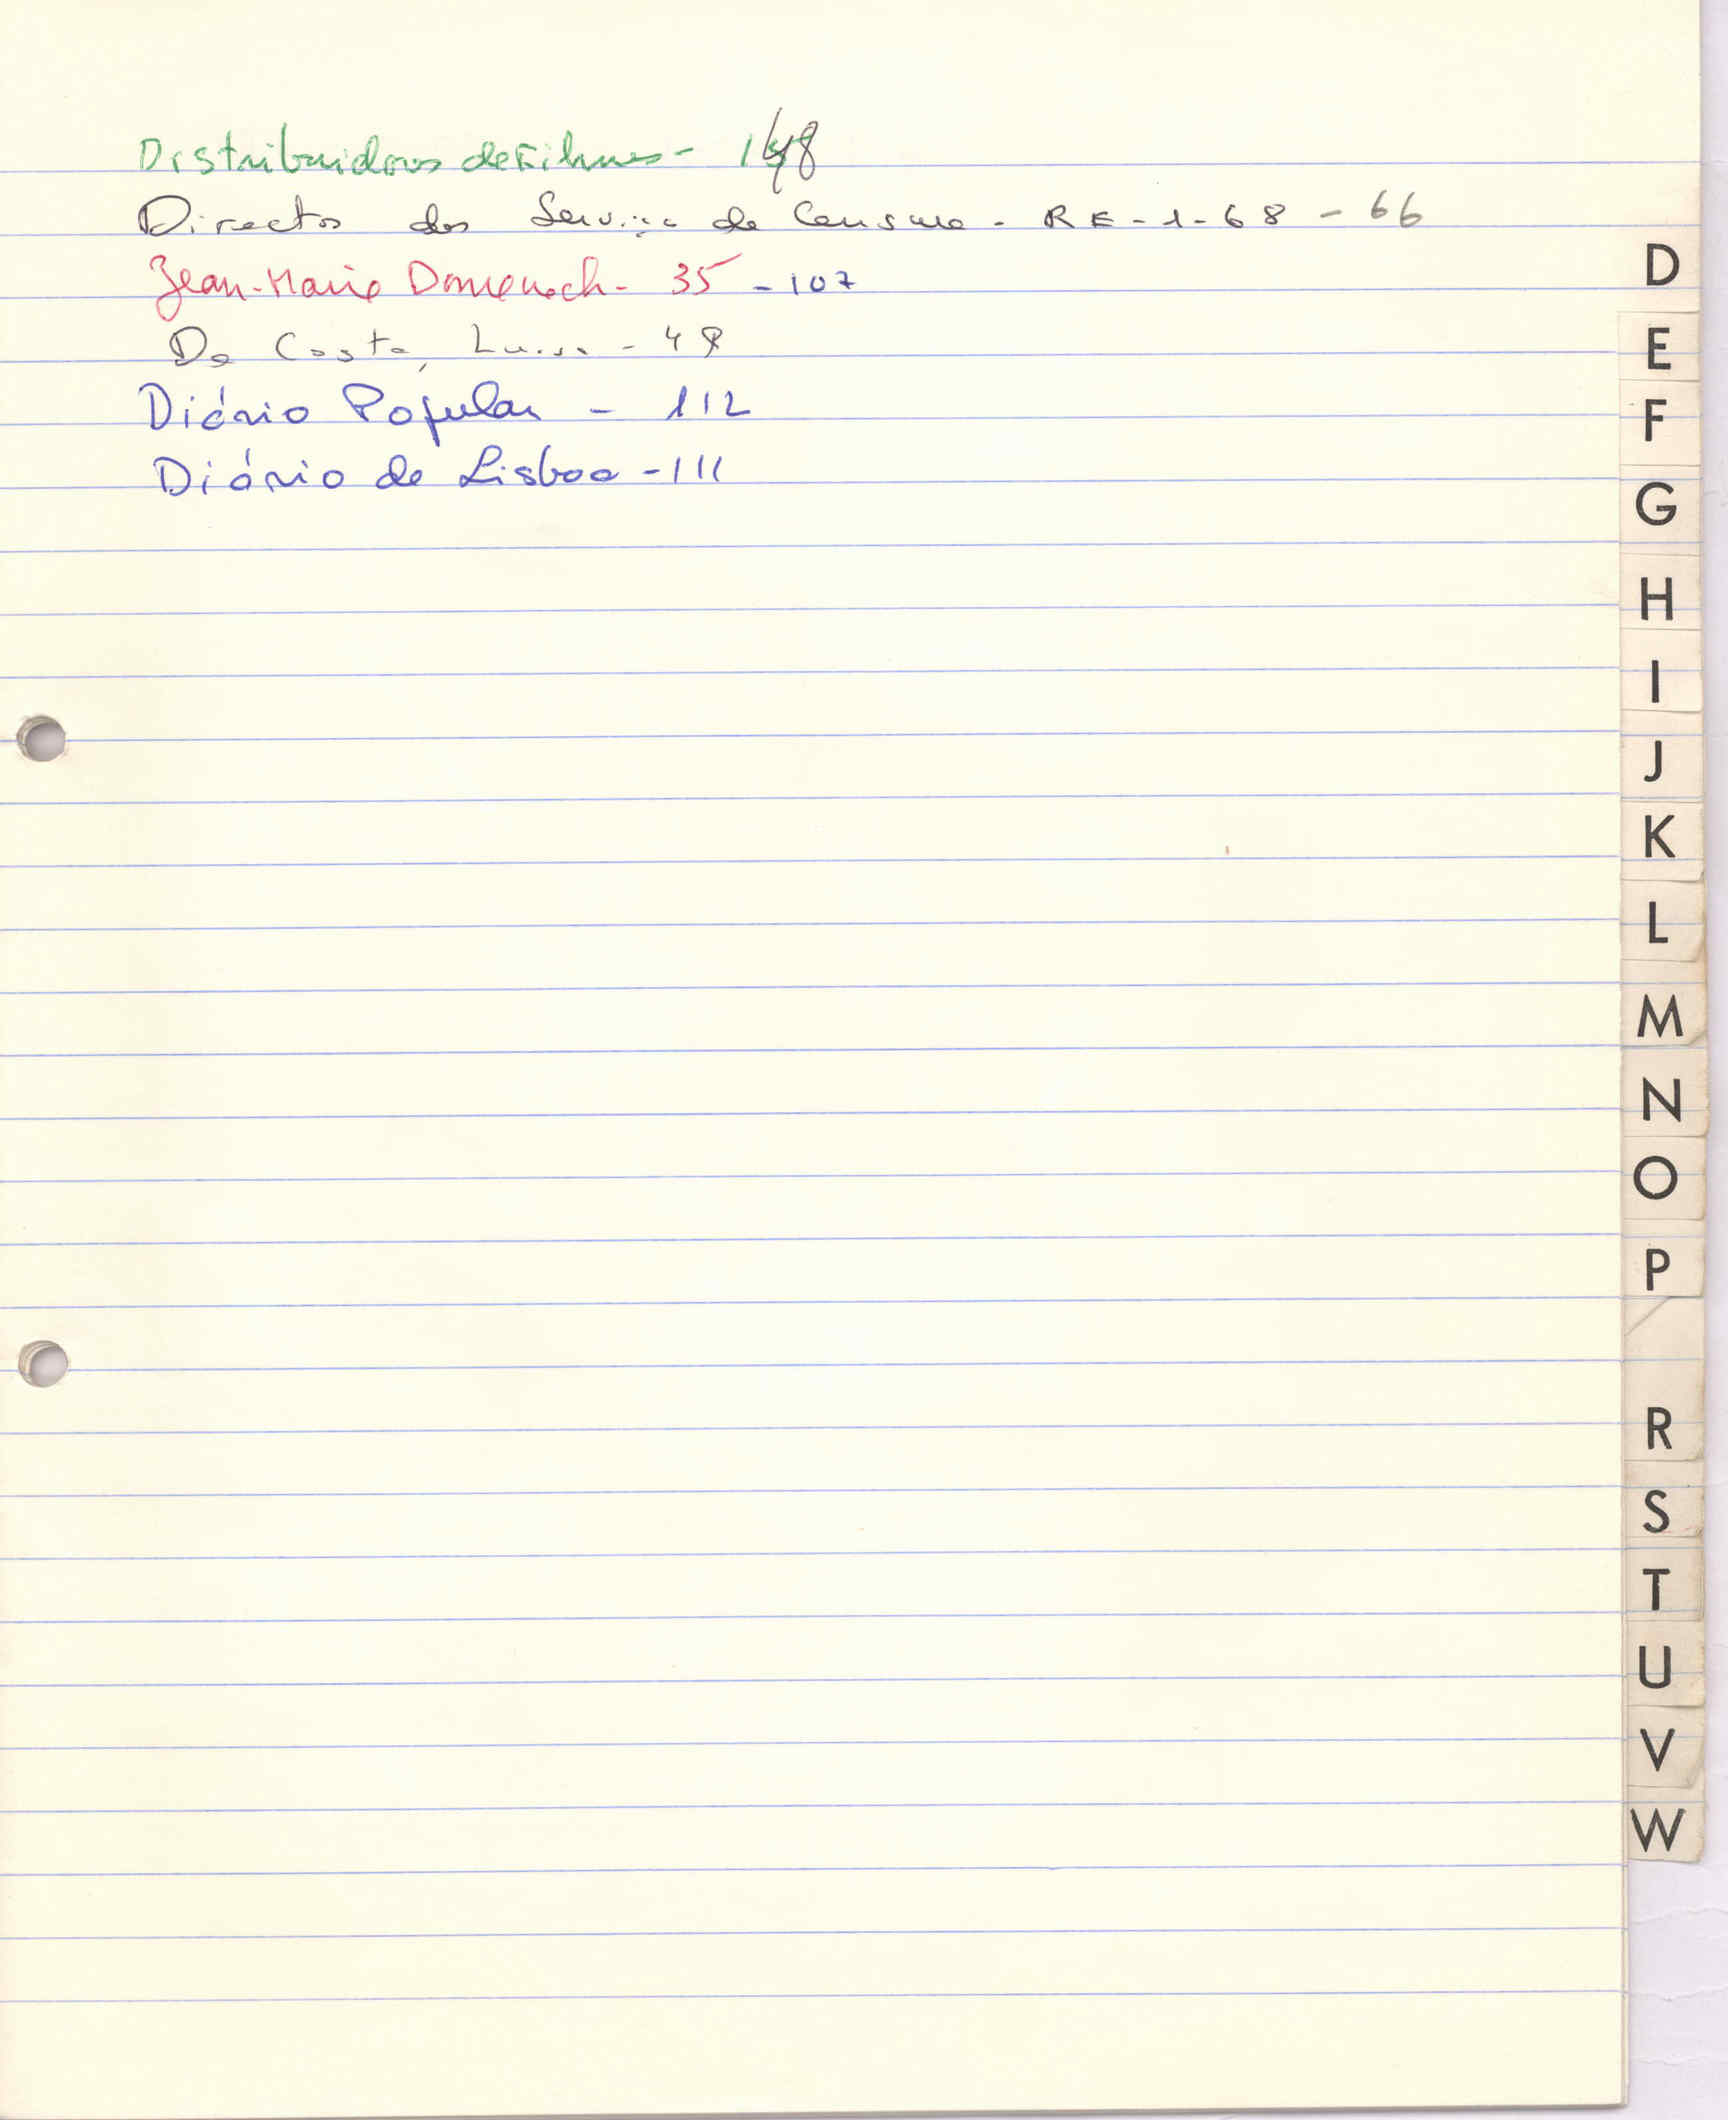 Distribuidores de Filmes - 148
Director dos Serviços de Censura - RE-1-68 - 66
Jean-Marie Domenach - 35 - 107
Da Costa, Luisa - 48
Diário Popular - 112
Diário de Lisboa - 111
D
E
F
G
H
I
J
K
L
M
N
O
P
R
S
T
U
V
W